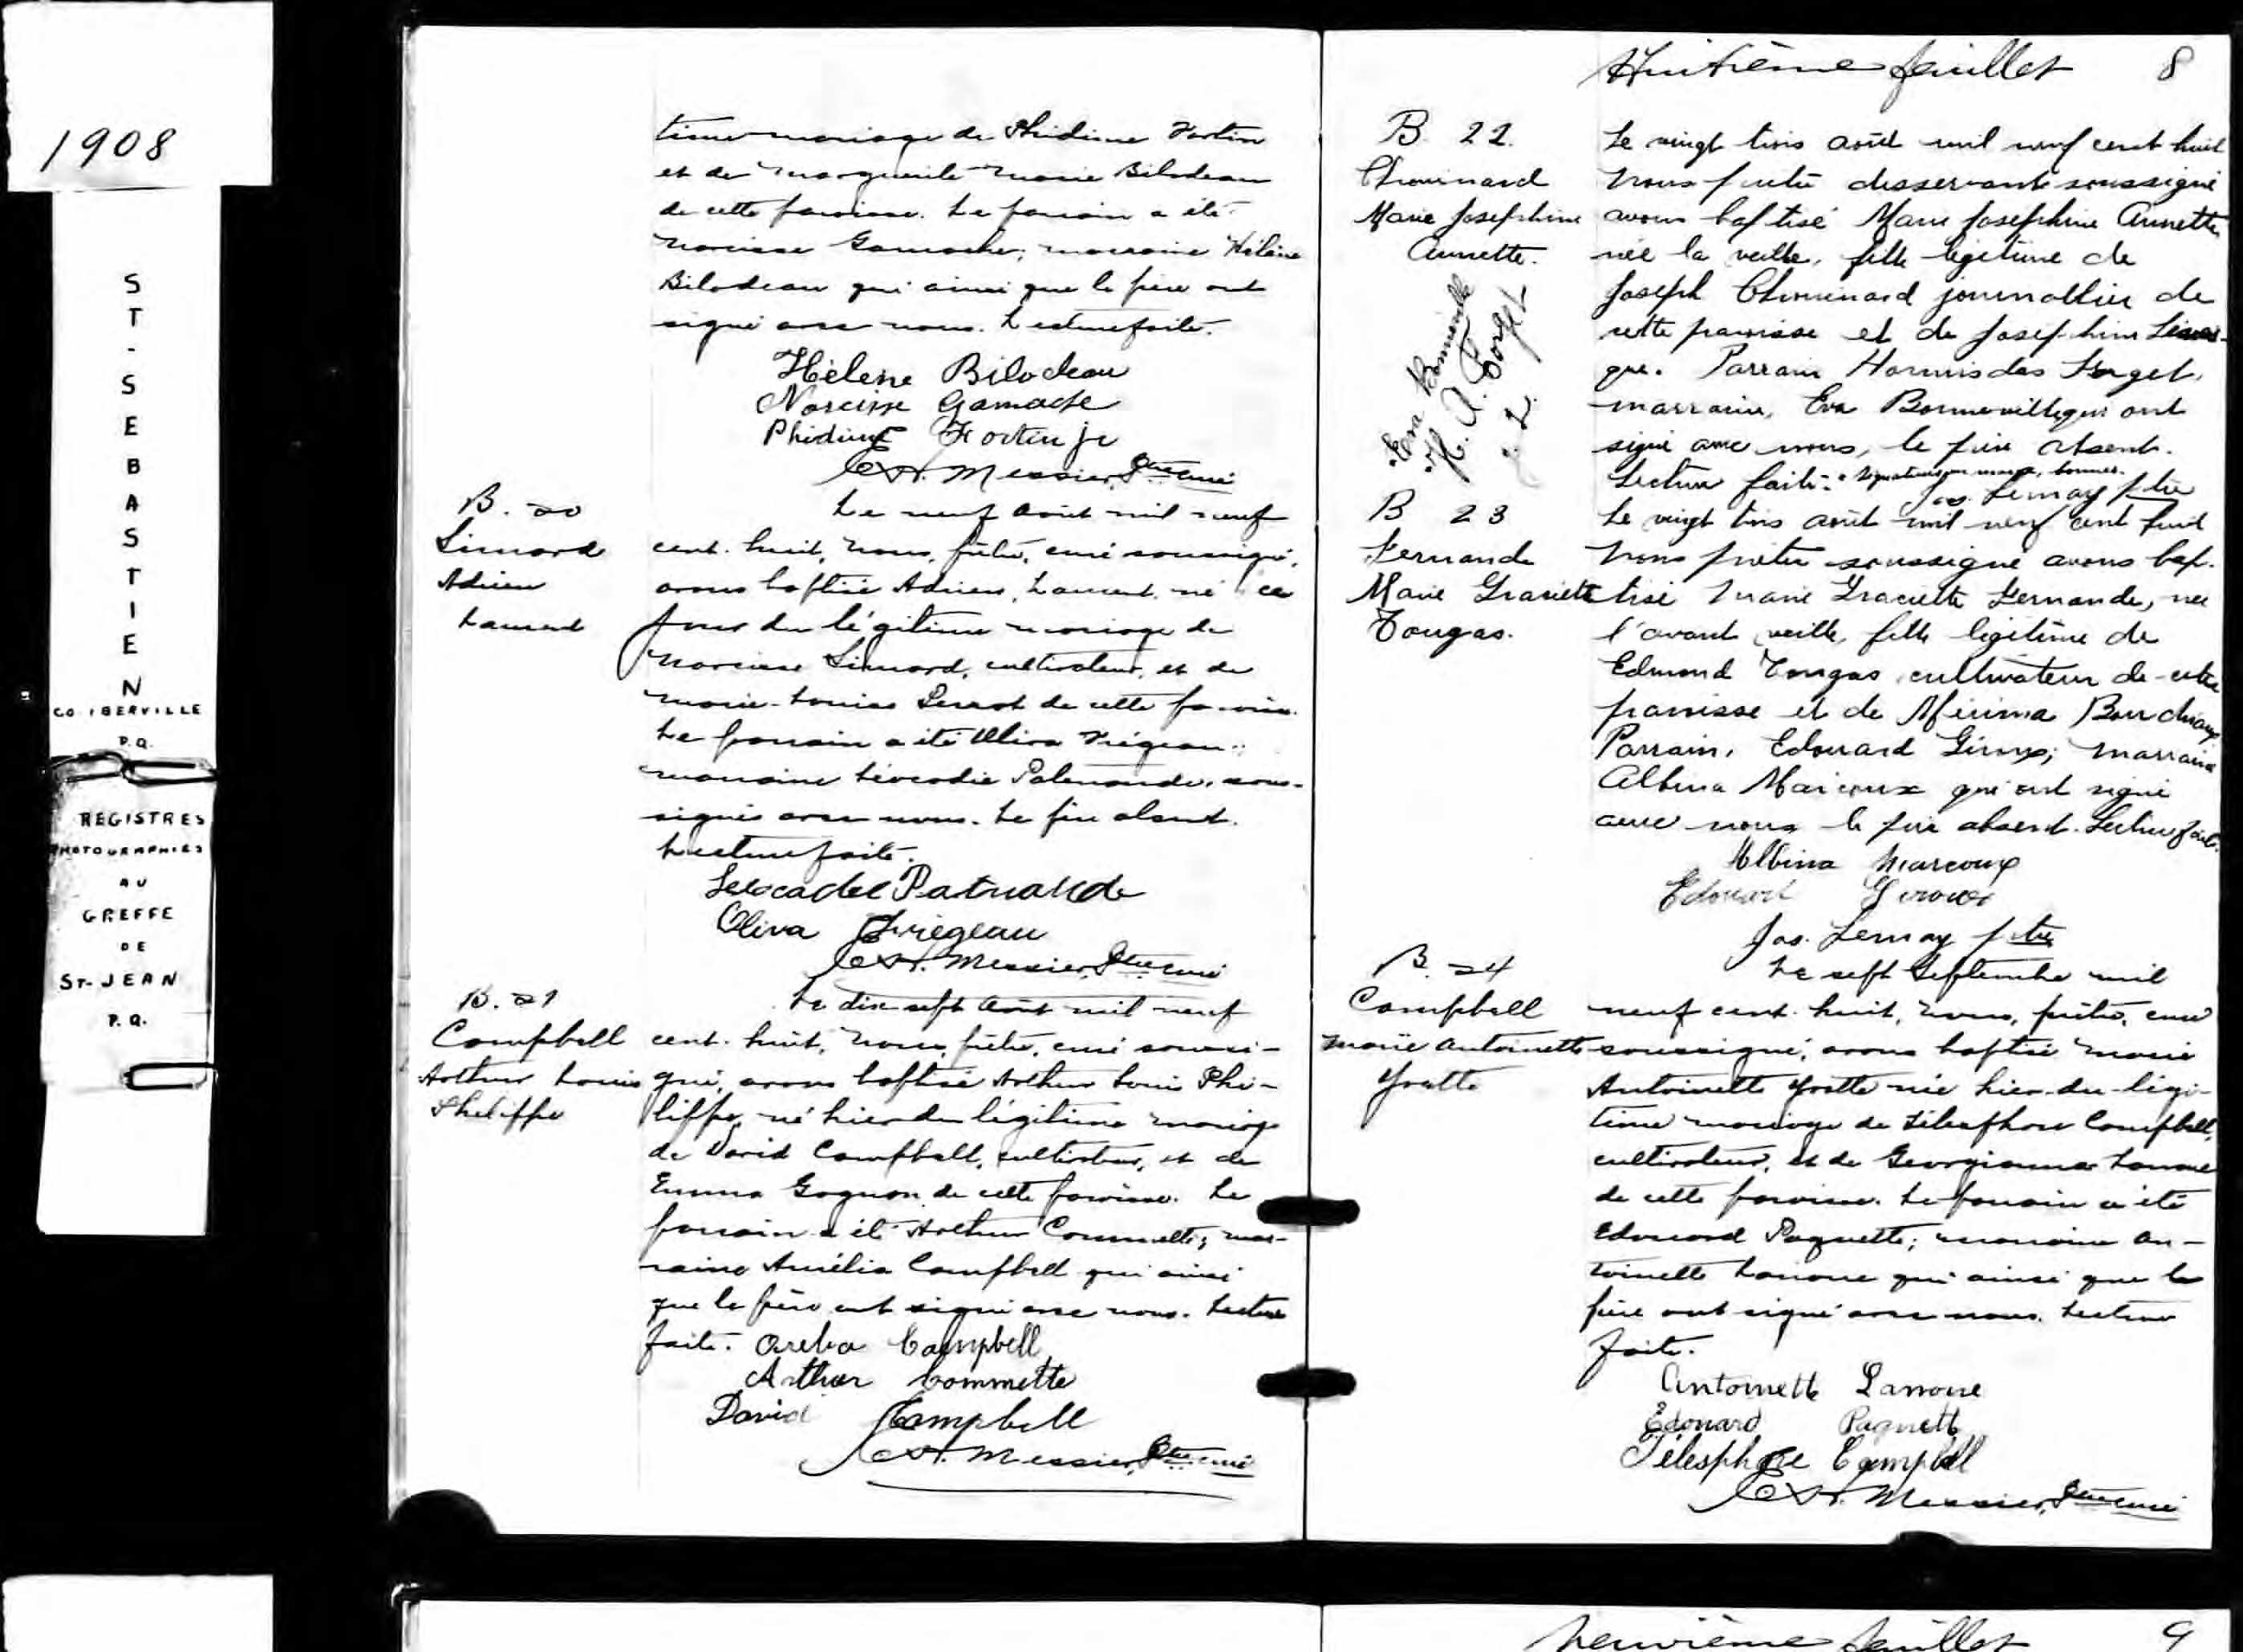 1908
ST-SEBASTIEN
CO. IBERVILLE
P.Q.
REGISTRES
PHOTOGRAPHIES
AU
GREFFE
DE
ST-JEAN
P.Q.
time mariage de Phidime Fortin
et de Marguerite Marie Bilodeau
de cette paroisse. Le parrain a été
Narcisse Gamache; marraine Hélène
Bilodeau qui ainsi que le père ont
signé avec nous. Lecture faite.
Hélène Bilodeau
Narcisse Gamache
Phidime Fortin jr
Messier, Ptre curé
B. 20
Simard
Adrien
Laurent
Le neuf août mil neuf
cent huit, nous, prêtre, curé soussigné,
avons baptisé Adrien, Laurent, né ce
jour du légitime mariage de
Narcisse Simard, cultivateur, et de
Marie-Louise de cette paroisse.
Le parrain a été Oliva Frégeau;
marraine Léocadie Patenaude, sous-
signés avec nous. Le père absent.
Lecture faite.
Leocadie Patnaude
Oliva Frégeau
Messier, Ptre curé
B. 21
Campbell
Arthur Louis
Philippe
Le dix-sept août mil neuf
cent huit, nous, prêtre, curé soussi-
gné, avons baptisé Arthur Louis Phi-
lippe, né hier du légitime mariage
de David Campbell, cultivateur, et de
Emma Gagnon de cette paroisse. Le
parrain a été Arthur Commette; mar-
raine Amélia Campbell qui ainsi
que le père ont signé avec nous. Lecture
faite. Campbell
Arthur Commette
David Campbell
Messier, Ptre curé
Huitième feuillet 8
B. 22.
Chouinard
Marie Josephine
Annette.
Eva Bonneville
Le vingt trois août mil neuf cent huit
Nous prêtre desservant soussigné
avons baptisé Marie Josephine Annette
née la veille, fille légitime de
Joseph Chouinard journallier de
cette paroisse et de Josephine Léves-
que. Parrain Hormisdas
marraine, Eva Bonneville qui ont
signé avec nous, le père absent.
Lecture faite. Signatures en marge, bonnes.
Jos. Lemay ptre
B 23
Fernande
Marie Graciette
Tougas.
Le vingt trois août mil neuf cent huit
Nous prêtre soussigné avons bap-
tisé Marie Graciette Fernande, née
l'avant veille, fille légitime de
Edmond Tougas cultivateur de cette
paroisse et de
Parrain, Edouard Giroux; marraine
Albina Marcoux qui ont signé
avec nous le père absent. Lecture faite.
Albina Marcoux
Edouard Giroux
Jos. Lemay ptre
B. 24
Campbell
Marie Antoinette
Yvette
Le sept Septembre mil
neuf cent huit, nous, prêtre, curé
soussigné, avons baptisé Marie
Antoinette Yvette née hier du légi-
time mariage de Télesphore Campbell,
cultivateur, et de Georgianna Lanoue
de cette paroisse. Le parrain a été
Edouard Paquette; marraine An-
toinette Lanoue qui ainsi que le
père ont signé avec nous. Lecture
faite.
Antoinette Lanoue
Edouard Paquette
Télesphore Campbell
Messier, Ptre curé
neuvième feuillet 9